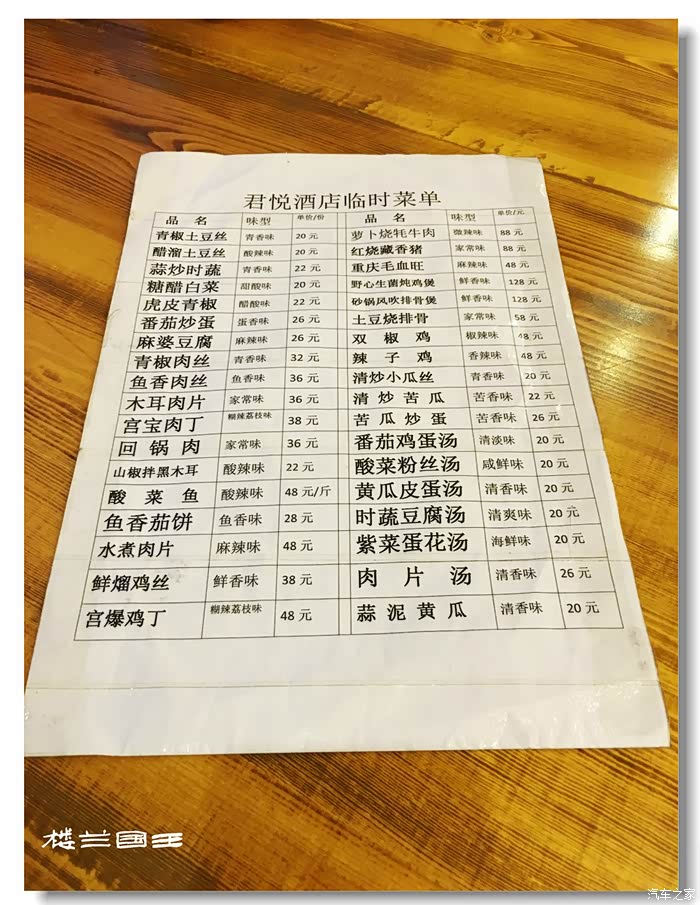 君悦酒店临时菜单
品 名 味型 单价/份 品 名 味型 单价/元
青椒土豆丝 青香味 20 元 萝卜烧牦牛肉 微辣味 88 元
醋溜土豆丝 酸辣味 20 元 红烧藏香猪 家常味 88 元
蒜炒时蔬 青香味 22 元 重庆毛血旺 麻辣味 48 元
糖醋白菜 甜酸味 20 元 野心生菌炖鸡煲 鲜香味 128 元
虎皮青椒 醋酸味 22 元 砂锅风吹排骨煲 鲜香味 128 元
番茄炒蛋 蛋香味 26 元 土豆烧排骨 家常味 58 元
麻婆豆腐 麻辣味 26 元 双 椒 鸡 椒辣味 48 元
青椒肉丝 青香味 32 元 辣 子 鸡 香辣味 48 元
鱼香肉丝 鱼香味 36 元 清炒小瓜丝 青香味 20 元
木耳肉片 家常味 36 元 清 炒 苦 瓜 苦香味 22 元
宫宝肉丁 糊辣荔枝味 38 元 苦 瓜 炒 蛋 苦香味 26 元
回 锅 肉 家常味 36 元 番茄鸡蛋汤 清淡味 20 元
山椒拌黑木耳 酸辣味 22 元 酸菜粉丝汤 咸鲜味 20 元
酸 菜 鱼 酸辣味 48 元/斤 黄瓜皮蛋汤 清香味 20 元
鱼香茄饼 鱼香味 28 元 时蔬豆腐汤 清爽味 20 元
水煮肉片 麻辣味 48 元 紫菜蛋花汤 海鲜味 20 元
鲜熘鸡丝 鲜香味 38 元 肉 片 汤 清香味 26 元
宫爆鸡丁 糊辣荔枝味 48 元 蒜 泥 黄 瓜 清香味 20 元
楼兰国王
汽车之家